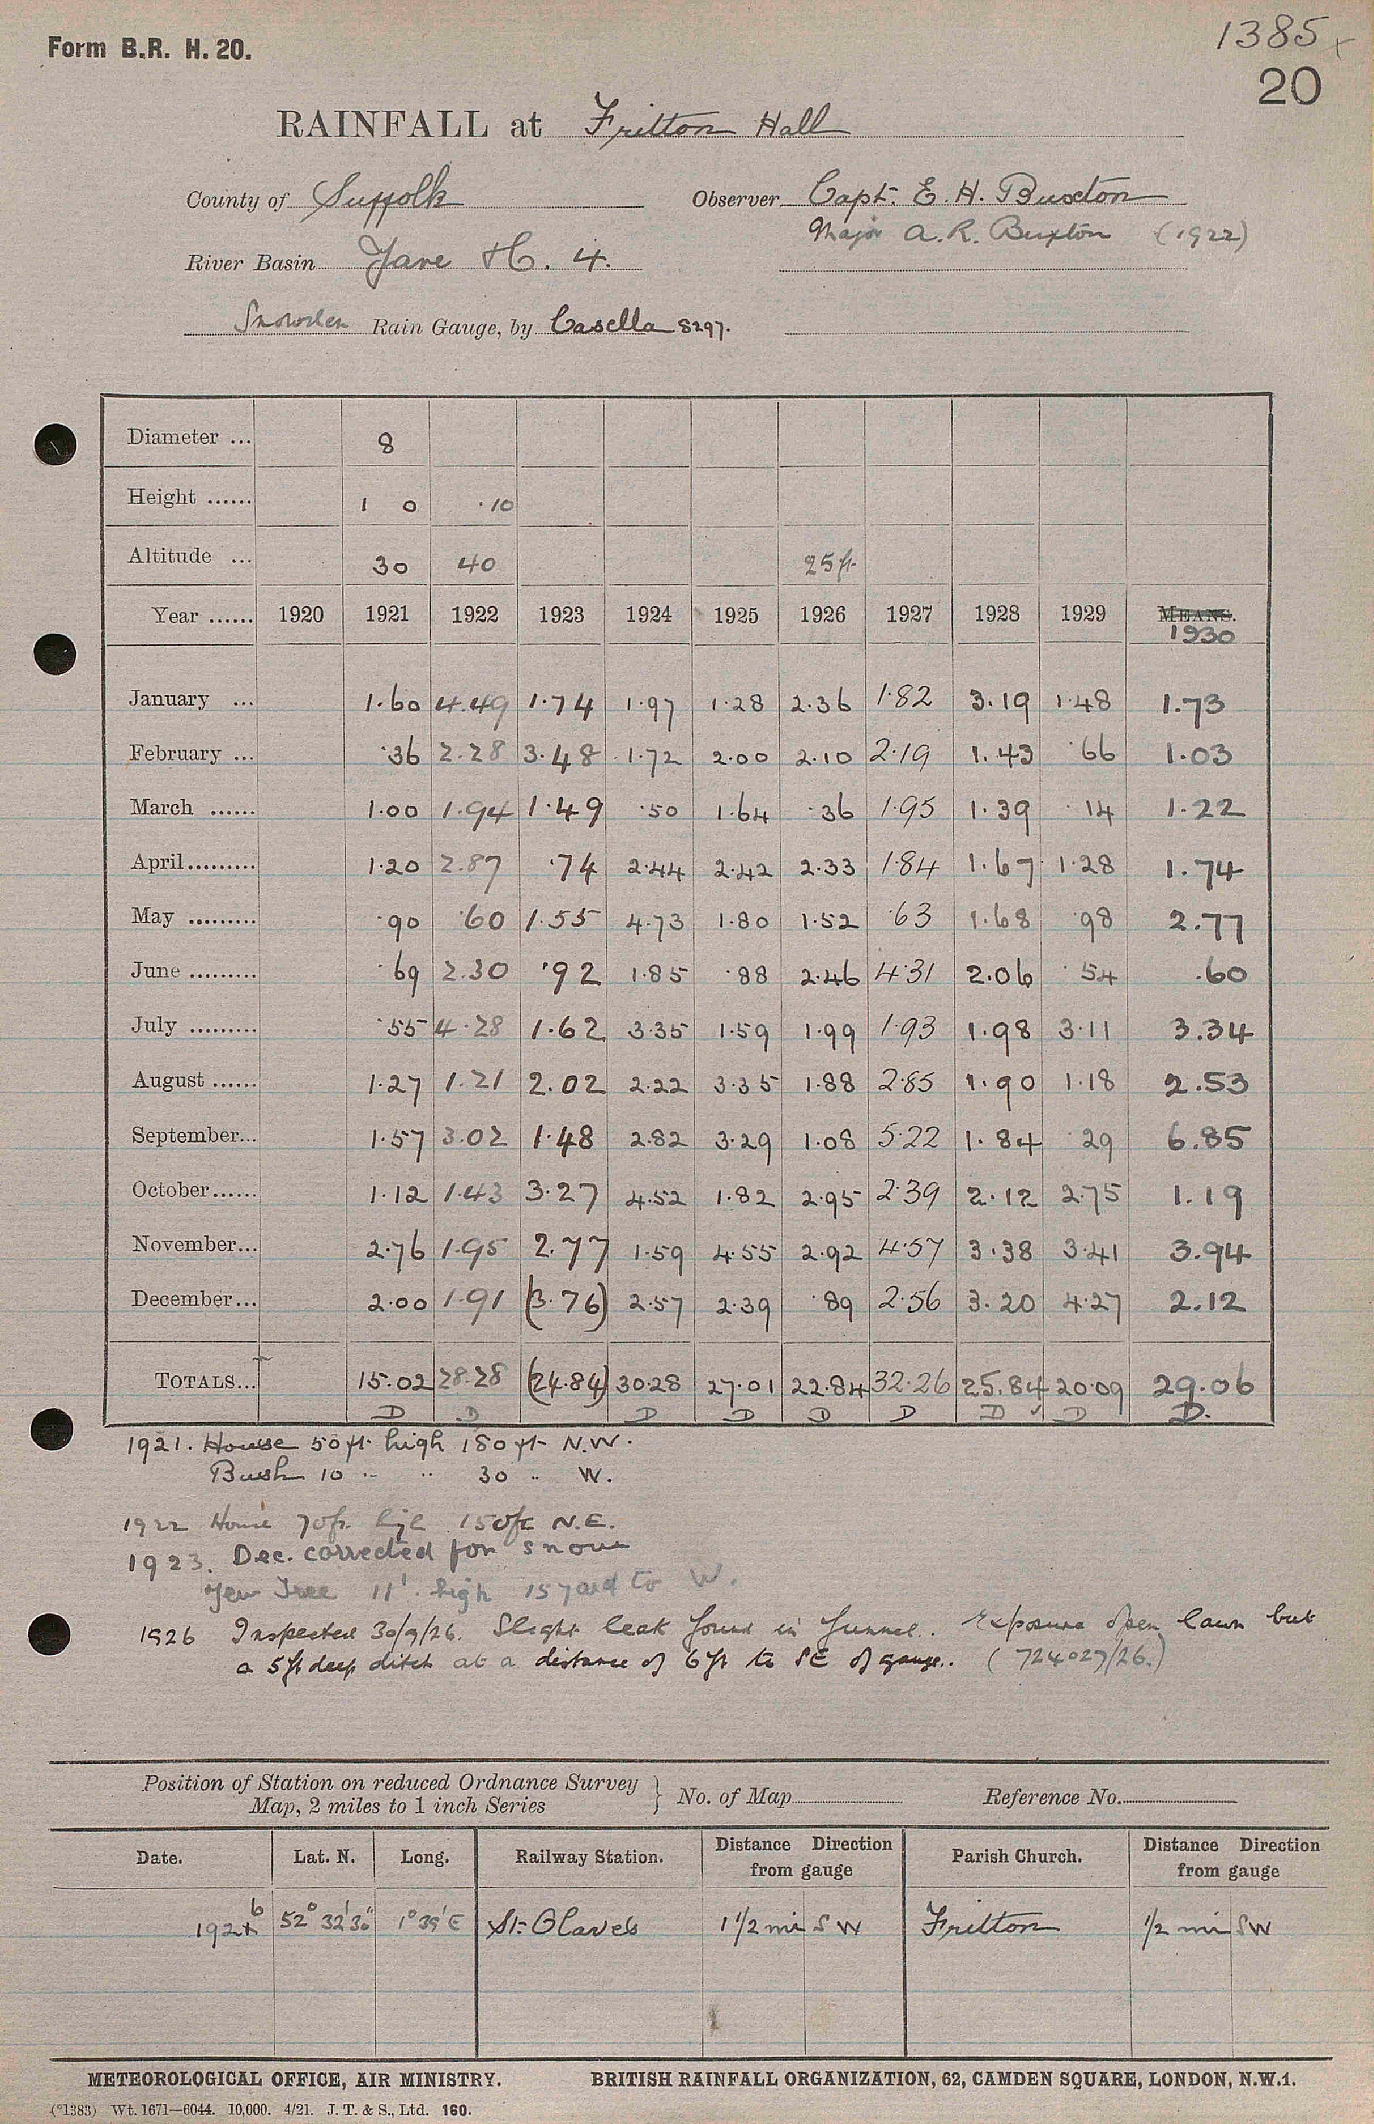 1385
Form B.R. H. 20.
20
RAINFALL at Fritton Hall
County of Suffolk Observer Capt. E. H. Buxton
Major A. R. Buxton (1922)
River Basin Yare H. 4.
Snowden Rain Gauge, by Casella 8297.
Diameter ... 8
Height ...... 1 0 .10
Altitude ... 30 40 25 ft.
Year ...... 1920 1921 1922 1923 1924 1925 1926 1927 1928 1929 MEANS.
1930
January ... 1.60 4.49 1.74 1.97 1.28 2.36 1.82 3.19 1.48 1.73
February ... .36 2.28 3.48 1.72 2.00 2.10 2.19 1.43 .66 1.03
March ...... 1.00 1.94 1.49 .50 1.64 .36 1.95 1.39 .14 1.22
April......... 1.20 2.87 .74 2.44 2.42 2.33 1.84 1.67 1.28 1.74
May ......... .90 .60 1.55 4.73 1.80 1.52 .63 1.68 .98 2.77
June ......... .69 2.30 .92 1.85 .88 2.46 4.31 2.06 .54 .60
July ......... .55 4.28 1.62 3.35 1.59 1.99 1.93 1.98 3.11 3.34
August ...... 1.27 1.21 2.02 2.22 3.35 1.88 2.85 1.90 1.18 2.53
September... 1.57 3.02 1.48 2.82 3.29 1.08 5.22 1.84 .29 6.85
October...... 1.12 1.43 3.27 4.52 1.82 2.95 2.39 2.12 2.75 1.19
November... 2.76 1.95 2.77 1.59 4.55 2.92 4.57 3.38 3.41 3.94
December... 2.00 1.91 (3.76) 2.57 2.39 .89 2.56 3.20 4.27 2.12
TOTALS... 15.02 28.28 (24.84) 30.28 27.01 22.84 32.26 25.84 20.09 29.06
D D D D D D D ✓ D D.
1921. House 50 ft. high 180 ft. N.W.
Bush 10 " " 30 " W.
1922 House 70 ft. high 150 ft N.E.
1923. Dec. corrected for snow
Yew Tree 11' high 15 yard to W.
1926 Inspected 30/9/26. Slight leak found in funnel. Exposure open lawn but
a 5 ft deep ditch at a distance of 6 ft to SE of gauge. (724027/26.)
Position of Station on reduced Ordnance Survey
Map, 2 miles to 1 inch Series } No. of Map Reference No.
Date. Lat. N. Long. Railway Station. Distance Direction from gauge Parish Church. Distance Direction from gauge
1926 52° 32' 30" 1° 39' E St. Olaves 1 1/2 mi SW Fritton 1/2 mi SW
METEOROLOGICAL OFFICE, AIR MINISTRY. BRITISH RAINFALL ORGANIZATION, 62, CAMDEN SQUARE, LONDON, N.W.1.
(*1383) Wt. 1671—6044. 10,000. 4/21. J. T. & S., Ltd. 160.